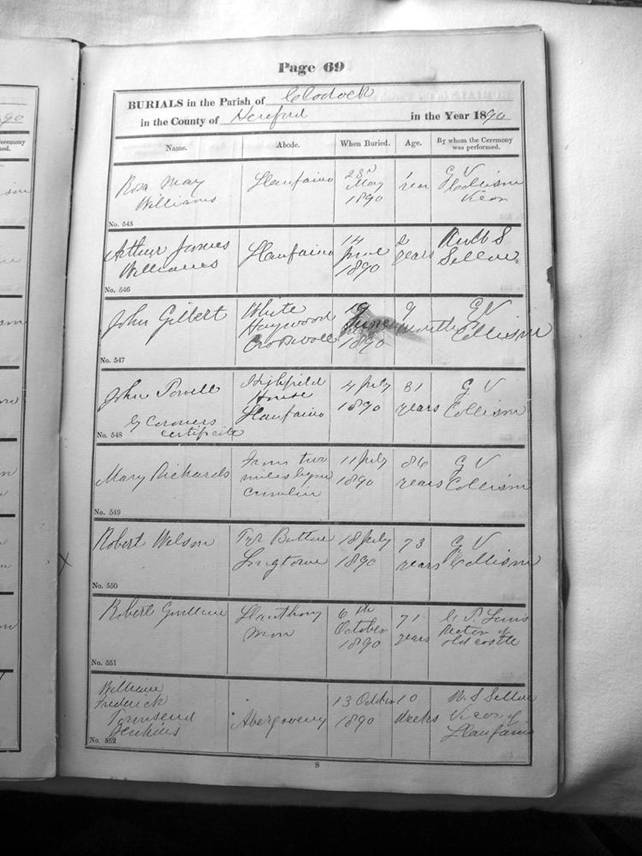 Page 69
BURIALS in the Parish of Clodock
in the County of Hereford in the Year 1890
Name. Abode. When Buried. Age. By whom the Ceremony was performed.
Rosa May Williams Llanfaino 23rd May 1890 1 year G V Collison Vicar
No. 545
Arthur James Williams Llanfaino 14 June 1890 2 years
No. 546
John Gilbert White Haywood Craswall 19 June 1890 9 months G V Collison
No. 547
John Powell Highfield House Llanfaino 4 July 1890 81 years G V Collison
By Coroners certificate
No. 548
Mary Richards From two miles beyond 11 July 1890 86 years G V Collison
No. 549
Robert Wilson Longtown 18 July 1890 73 years G V Collison
No. 550
Robert Llanthony Mon 6th October 1890 71 years Rector of old castle
No. 551
William Frederick Townsend Jenkins Abergavenny 13 October 1890 10 weeks Vicar of Llanfaino
No. 552
8